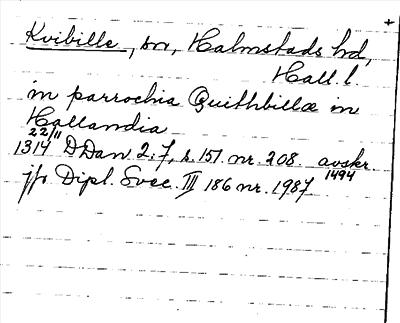 Kvibille, sn, Halmstads hd,
Hall. l.
in parrochia Quithbillæ in
Hallandia
22/11
1314 DDan 2:7, s. 151. nr. 208. avskr. 1494
jfr Dipl. Svec. III 186 nr. 1987